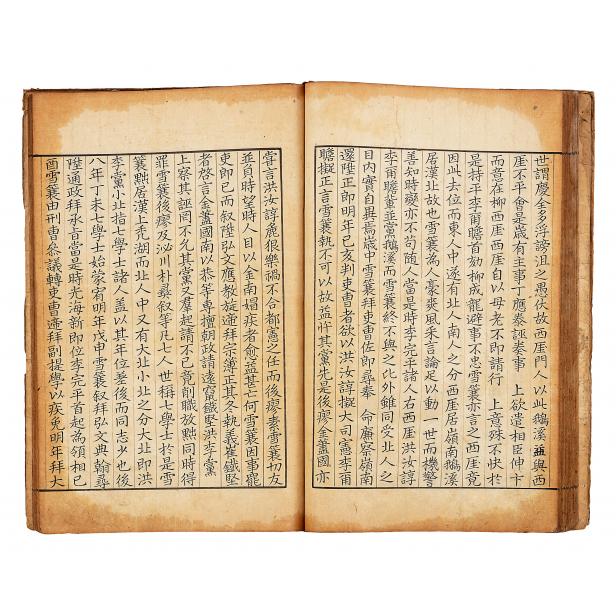 世謂慶金多浮謗沮之愚伏故西厓門人以此鵝溪並與西
厓不平會是歲有主事丁應泰誣奏事 上欲遣相臣伸卞
而柳西厓西厓自以母老不即請行 上意殊不快於
是持平李爾瞻首劾柳成龍避事不忠雪蓑亦言之西厓竟
因此去位而東人中遂有北人南人之分西厓居嶺南鵝溪
居漢北故也雪蓑為人豪爽風采言論足以動一世而機警
善知時變亦不苟隨人當是時李完平諸人右西厓洪汝諄
李爾瞻輩並黨鵝溪而雪蓑終不與之比外雖同受北人之
目內實自異焉歲中雪蓑拜吏曹佐郎尋奉 命廉察嶺南
還陞正郎明年己亥判吏曹者欲以洪汝諄擬大司憲李爾
瞻擬正言雪蓑執不可以故益忤其黨先是後瘳金藎國亦
嘗言洪汝諄麁狠樂禍不合都憲之任而後瘳素雪蓑切友
並負時望時人目以金南媢疾者愈益甚亡何雪蓑因事罷
吏郎已而叙陞弘文應教旋遞拜宗簿正其冬執義崔鐵堅
者啓言金藎國南以恭等專擅朝政請遠竄鐵堅洪李黨
上察其誣罔不允其黨又羣起請不已竟削職放黜同時得
罪雪蓑後瘳及泌川朴彝叙等凡七人世稱七學士於是雪
蓑黜居漢上禿湖而北人中又有大北小北之分大北即洪
李黨小北指七學士諸人盖以其年位差後而同志少也後
八年丁未七學士始蒙宥明年戊申雪蓑叙拜弘文典翰尋
陞通政拜承旨當是時光海新即位李完平首起為領相己
酉雪蓑由刑曹參議轉吏曹遞拜副提學以疾免明年拜大